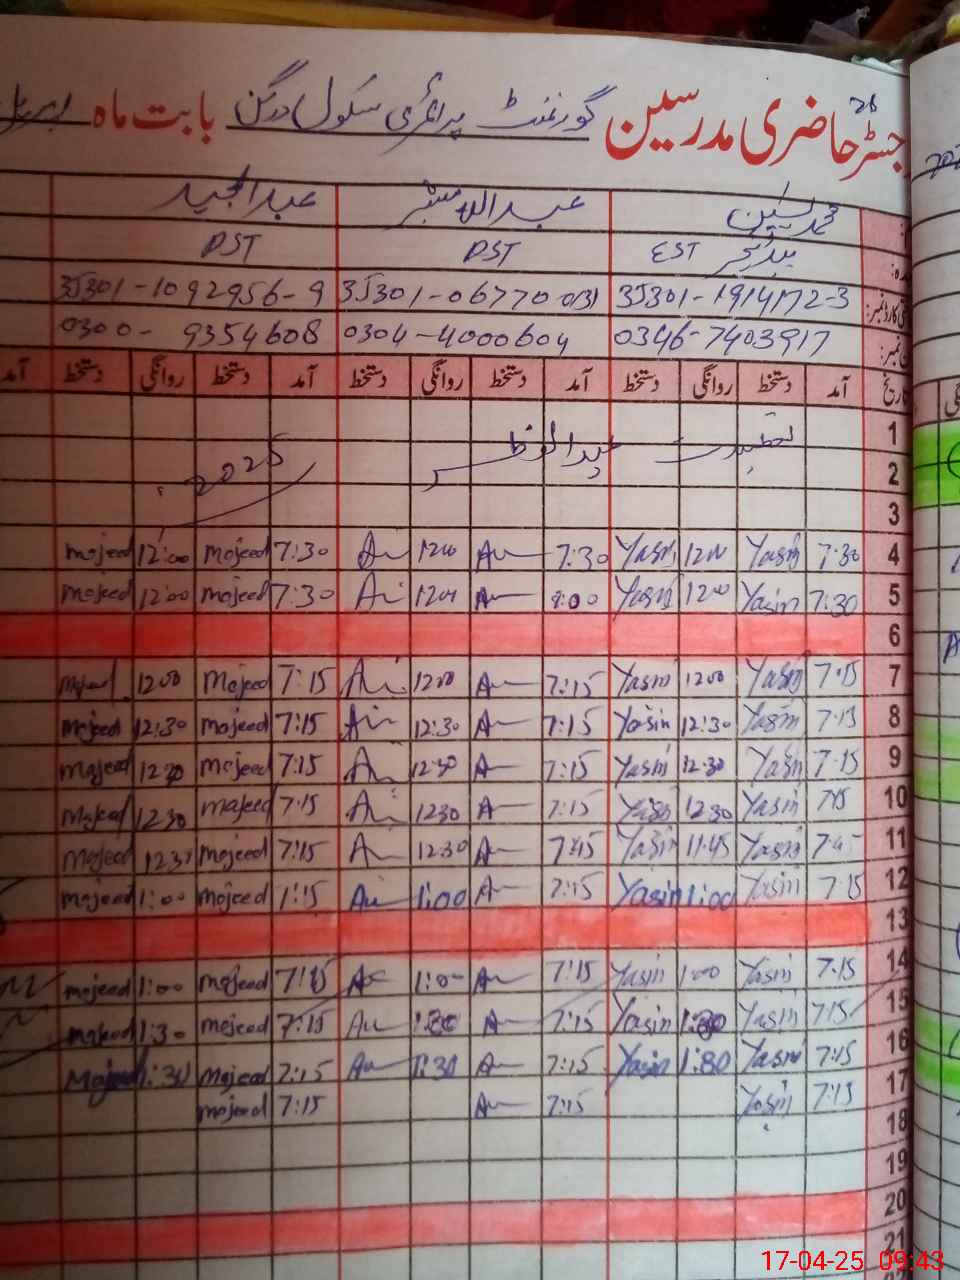 جسٹر حاضری مدرسین گورنمنٹ پرائمری سکول درگن بابت ماہ اپریل
محمد یٰسین عبداللہ مبشر عبدالمجید
ہیڈ ٹیچر EST PST PST
35301-1914172-3 35301-06770 35301-1092956-9
0346-7403917 0304-4000604 0300-9354608
تاریخ آمد دستخط روانگی دستخط آمد دستخط روانگی دستخط آمد دستخط روانگی دستخط آمد
1
2 تعطیلات عیدالفطر 2025
3
4 7:30 Yasin 1200 Yasin 7:30 1200 7:30 majeed 12:00 majeed
5 7:30 Yasin 1200 Yasin 8:00 1200 7:30 majeed 12:00 majeed
6
7 7:15 Yasin 1200 Yasin 7:15 1200 7:15 majeed 1200 majeed
8 7:15 Yasin 12:30 Yasin 7:15 12:30 7:15 majeed 12:30 majeed
9 7:15 Yasin 12:30 Yasin 7:15 12:30 7:15 majeed 1230 majeed
10 7:15 Yasin 12:30 Yasin 7:15 1230 7:15 majeed 1230 majeed
11 Yasin 11:45 Yasin 12:30 7:15 majeed majeed
12 7:15 Yasin 1:00 Yasin 7:15 1:00 majeed 1:00 majeed
13
14 7:15 Yasin 1:00 Yasin 7:15 1:00 7:15 majeed 1:00 majeed
15 7:15 Yasin 1:30 Yasin 7:15 1:30 7:15 majeed 1:30 majeed
16 7:15 Yasin 1:30 Yasin 7:15 1:30 7:15 majeed 1:30 majeed
17 7:15 Yasin 7:15 7:15 majeed
18
19
20
21
17-04-25 09:43